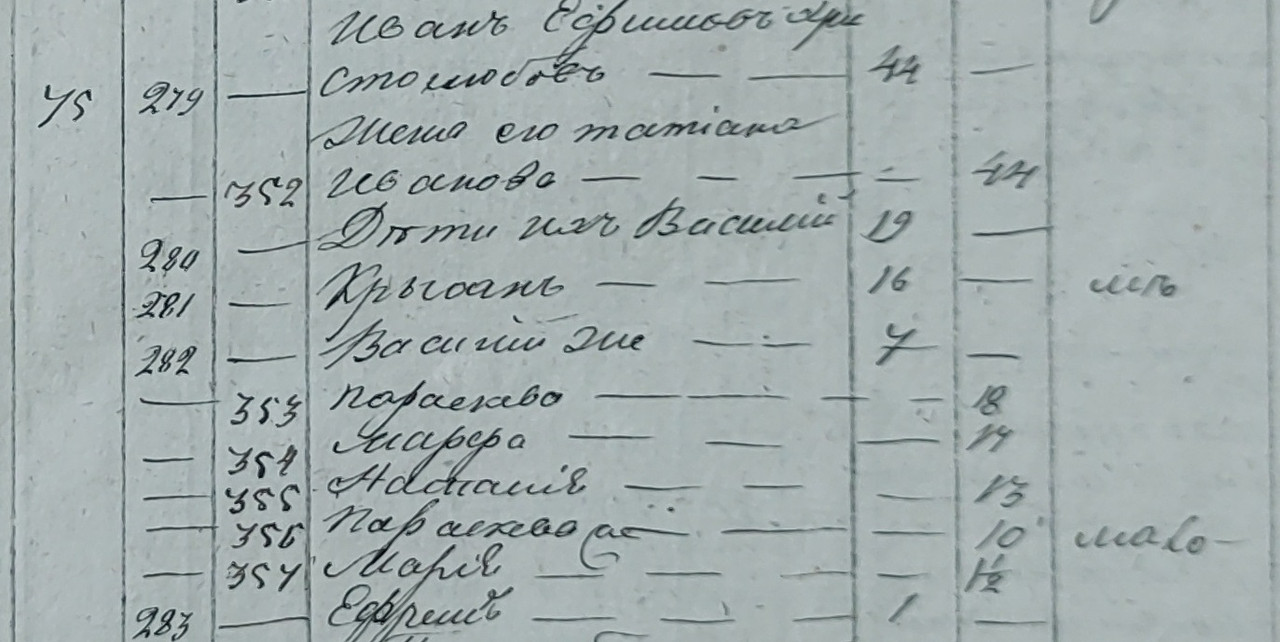 Иванъ Ефимовъ Хри
75 279 — столюбовъ — — 44 —
Жена его татіана
— 352 Иванова — — — — 44
280 — Дѣти ихъ Василій 19 —
281 — Хрысанъ — — 16 —
282 — Василій же — — 7 —
— 353 параскева — — — — 18
— 354 Марфа — — — 14
— 355 Наталія — — — 13
— 356 параскева же — — — 10
— 357 Марія — — — — 1½
283 — Ефремъ — — — 1 —